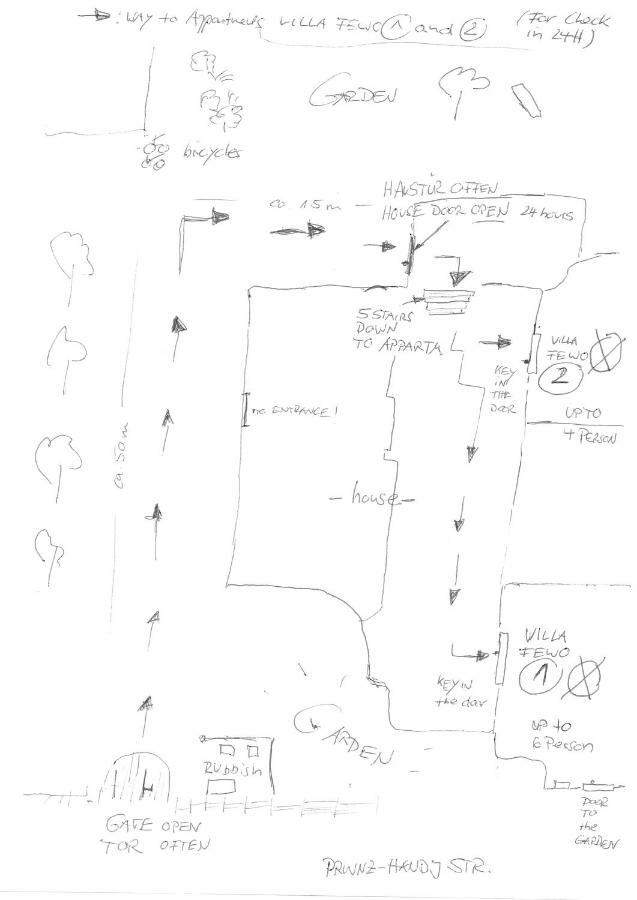 : WAY to Appartments VILLA FEWO 1 and 2 (For Check
in 24H)
GARDEN
bicycles
ca 15m
HAUSTÜR OFFEN
HOUSE DOOR OPEN 24 hours
5 STAIRS
DOWN
TO APPARTM
VILLA
FEWO
2
KEY
IN
THE
DOOR
UP TO
4 PERSON
no ENTRANCE!
ca 50m
- house -
VILLA
FEWO
1
KEY IN
the door
UP to
6 Person
GARDEN
RUBBISH
DOOR
TO
the
GARDEN
GATE OPEN
TOR OFFEN
STR.